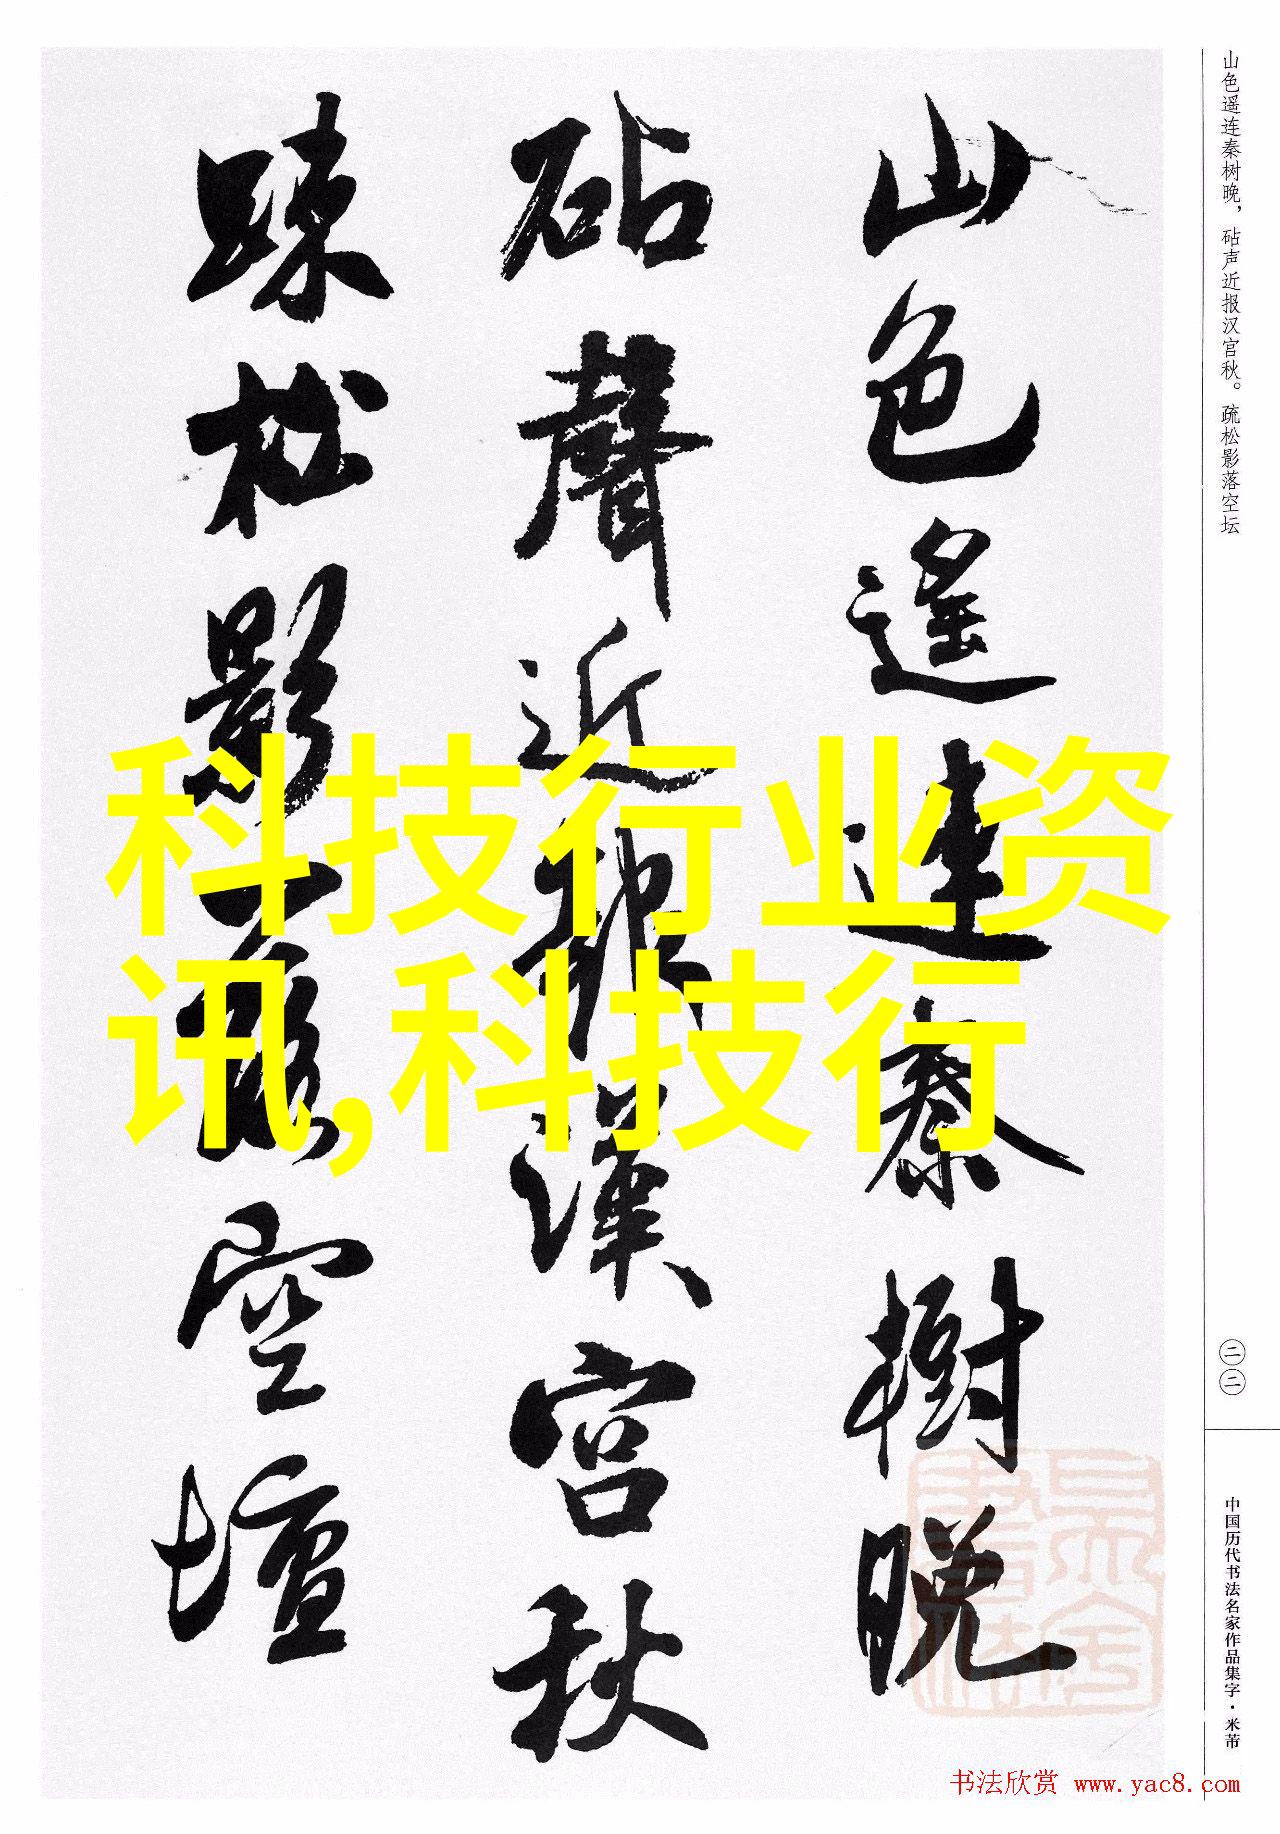 山色遥连秦树晚，砧声近报汉宫秋。疏松影落空坛
山色遥連秦樹晚
砧聲近報漢宮秋
踈松影落空壇
科技行业资
讯,科技行
二二
中国历代书法名家作品集字·米芾
书法欣赏 www.yac8.com